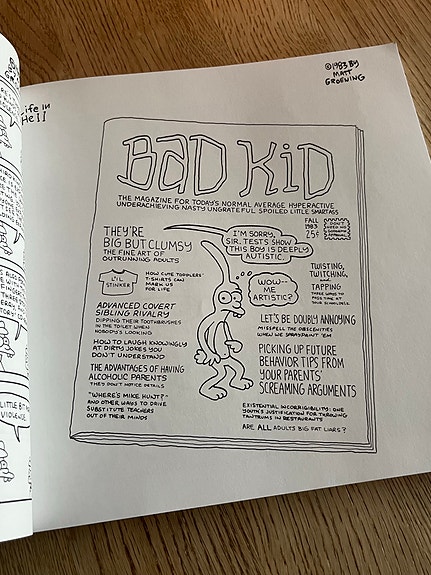 Life in
Hell
©1983 BY
MATT
GROENING
BAD KID
THE MAGAZINE FOR TODAY'S NORMAL AVERAGE HYPERACTIVE
UNDERACHIEVING NASTY UNGRATEFUL SPOILED LITTLE SMARTASS
FALL
1983
25¢
DON'T
THEY'RE
BIG BUT CLUMSY
THE FINE ART OF
OUTRUNNING ADULTS
I'M SORRY,
SIR. TESTS SHOW
THIS BOY IS DEEPLY
AUTISTIC.
WOW--
ME
ARTISTIC?
L'IL
STINKER
HOW CUTE TODDLERS'
T-SHIRTS CAN
MARK US
FOR LIFE
TWISTING,
TWITCHING,
TAPPING
THREE WAYS TO
PASS TIME AT
YOUR SCHOOLDESK
ADVANCED COVERT
SIBLING RIVALRY
DIPPING THEIR TOOTHBRUSHES
IN THE TOILET WHEN
NOBODY'S LOOKING
LET'S BE DOUBLY ANNOYING
MISSPELL THE OBSCENITIES
WHEN WE SPRAYPAINT 'EM
HOW TO LAUGH KNOWINGLY
AT DIRTY JOKES YOU
DON'T UNDERSTAND
PICKING UP FUTURE
BEHAVIOR TIPS FROM
YOUR PARENTS'
SCREAMING ARGUMENTS
THE ADVANTAGES OF HAVING
ALCOHOLIC PARENTS
THEY DON'T NOTICE DETAILS
"WHERE'S MIKE HUNT?"
AND OTHER WAYS TO DRIVE
SUBSTITUTE TEACHERS
OUT OF THEIR MINDS
EXISTENTIAL INCORRIGIBILITY: ONE
YOUTH'S JUSTIFICATION FOR THROWING
TANTRUMS IN RESTAURANTS
ARE ALL ADULTS BIG FAT LIARS?
LITTLE BIT
VIOLENCE